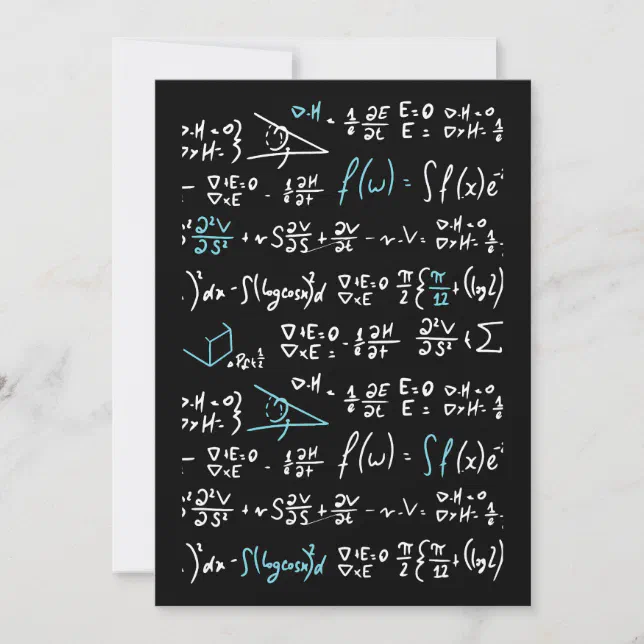 ∇.H = 1/e ∂E/∂t E=0 ∇.H=0
>.H=0} E= ∇×H= 1/e
>×H=}
– ∇+E=0 – 1/e ∂H/∂t f(ω) = ∫f(x)e^-
∇×E
² ∂²V/∂S² + rS ∂V/∂S + ∂V/∂t – r.V= ∇.H=0
∇×H= 1/e
.)² dx – ∫(log cosx)² d ∇+E=0 π/2 {π/12 + ((log2)
∇×E
∇+E=0 – 1/e ∂H/∂t ∂²V/∂S² + Σ
∇×E=
∇.H = 1/e ∂E/∂t E=0 ∇.H=0
>.H=0} E= ∇×H= 1/e
>×H=}
– ∇+E=0 – 1/e ∂H/∂t f(ω) = ∫f(x)e^-
∇×E
² ∂²V/∂S² + rS ∂V/∂S + ∂V/∂t – r.V= ∇.H=0
∇×H= 1/e
.)² dx – ∫(log cosx)² d ∇+E=0 π/2 {π/12 + ((log2)
∇×E